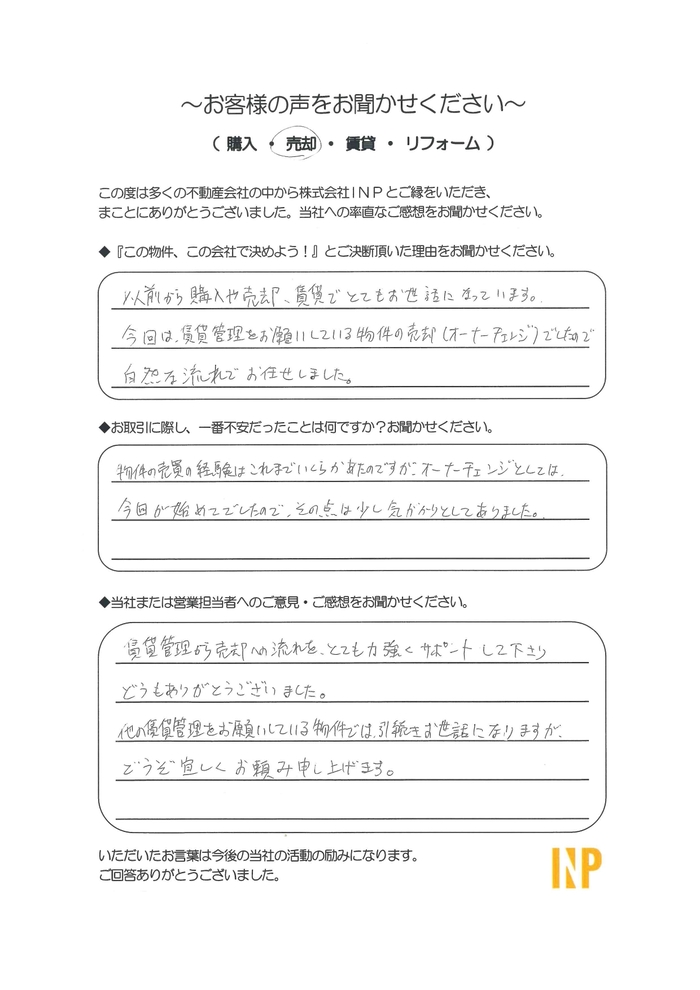 ～お客様の声をお聞かせください～
（ 購入 ・ 売却 ・ 賃貸 ・ リフォーム ）
この度は多くの不動産会社の中から株式会社ＩＮＰとご縁をいただき、
まことにありがとうございました。当社への率直なご感想をお聞かせください。
◆『この物件、この会社で決めよう！』とご決断頂いた理由をお聞かせください。
以前から購入や売却、賃貸でとてもお世話になっています。
今回は、賃貸管理をお願いしている物件の売却（オーナーチェンジ）でしたので
自然な流れでお任せしました。
◆お取引に際し、一番不安だったことは何ですか？お聞かせください。
物件の売買の経験はこれまでいくらかあたのですが、オーナーチェンジとしては、
今回が始めてでしたので、その点は少し気がかりとしてありました。
◆当社または営業担当者へのご意見・ご感想をお聞かせください。
賃貸管理から売却への流れを、とても力強くサポートして下さり
どうもありがとうございました。
他の賃貸管理をお願いしている物件では、引続きお世話になりますが、
どうぞ宜しくお頼み申し上げます。
いただいたお言葉は今後の当社の活動の励みになります。
ご回答ありがとうございました。
INP